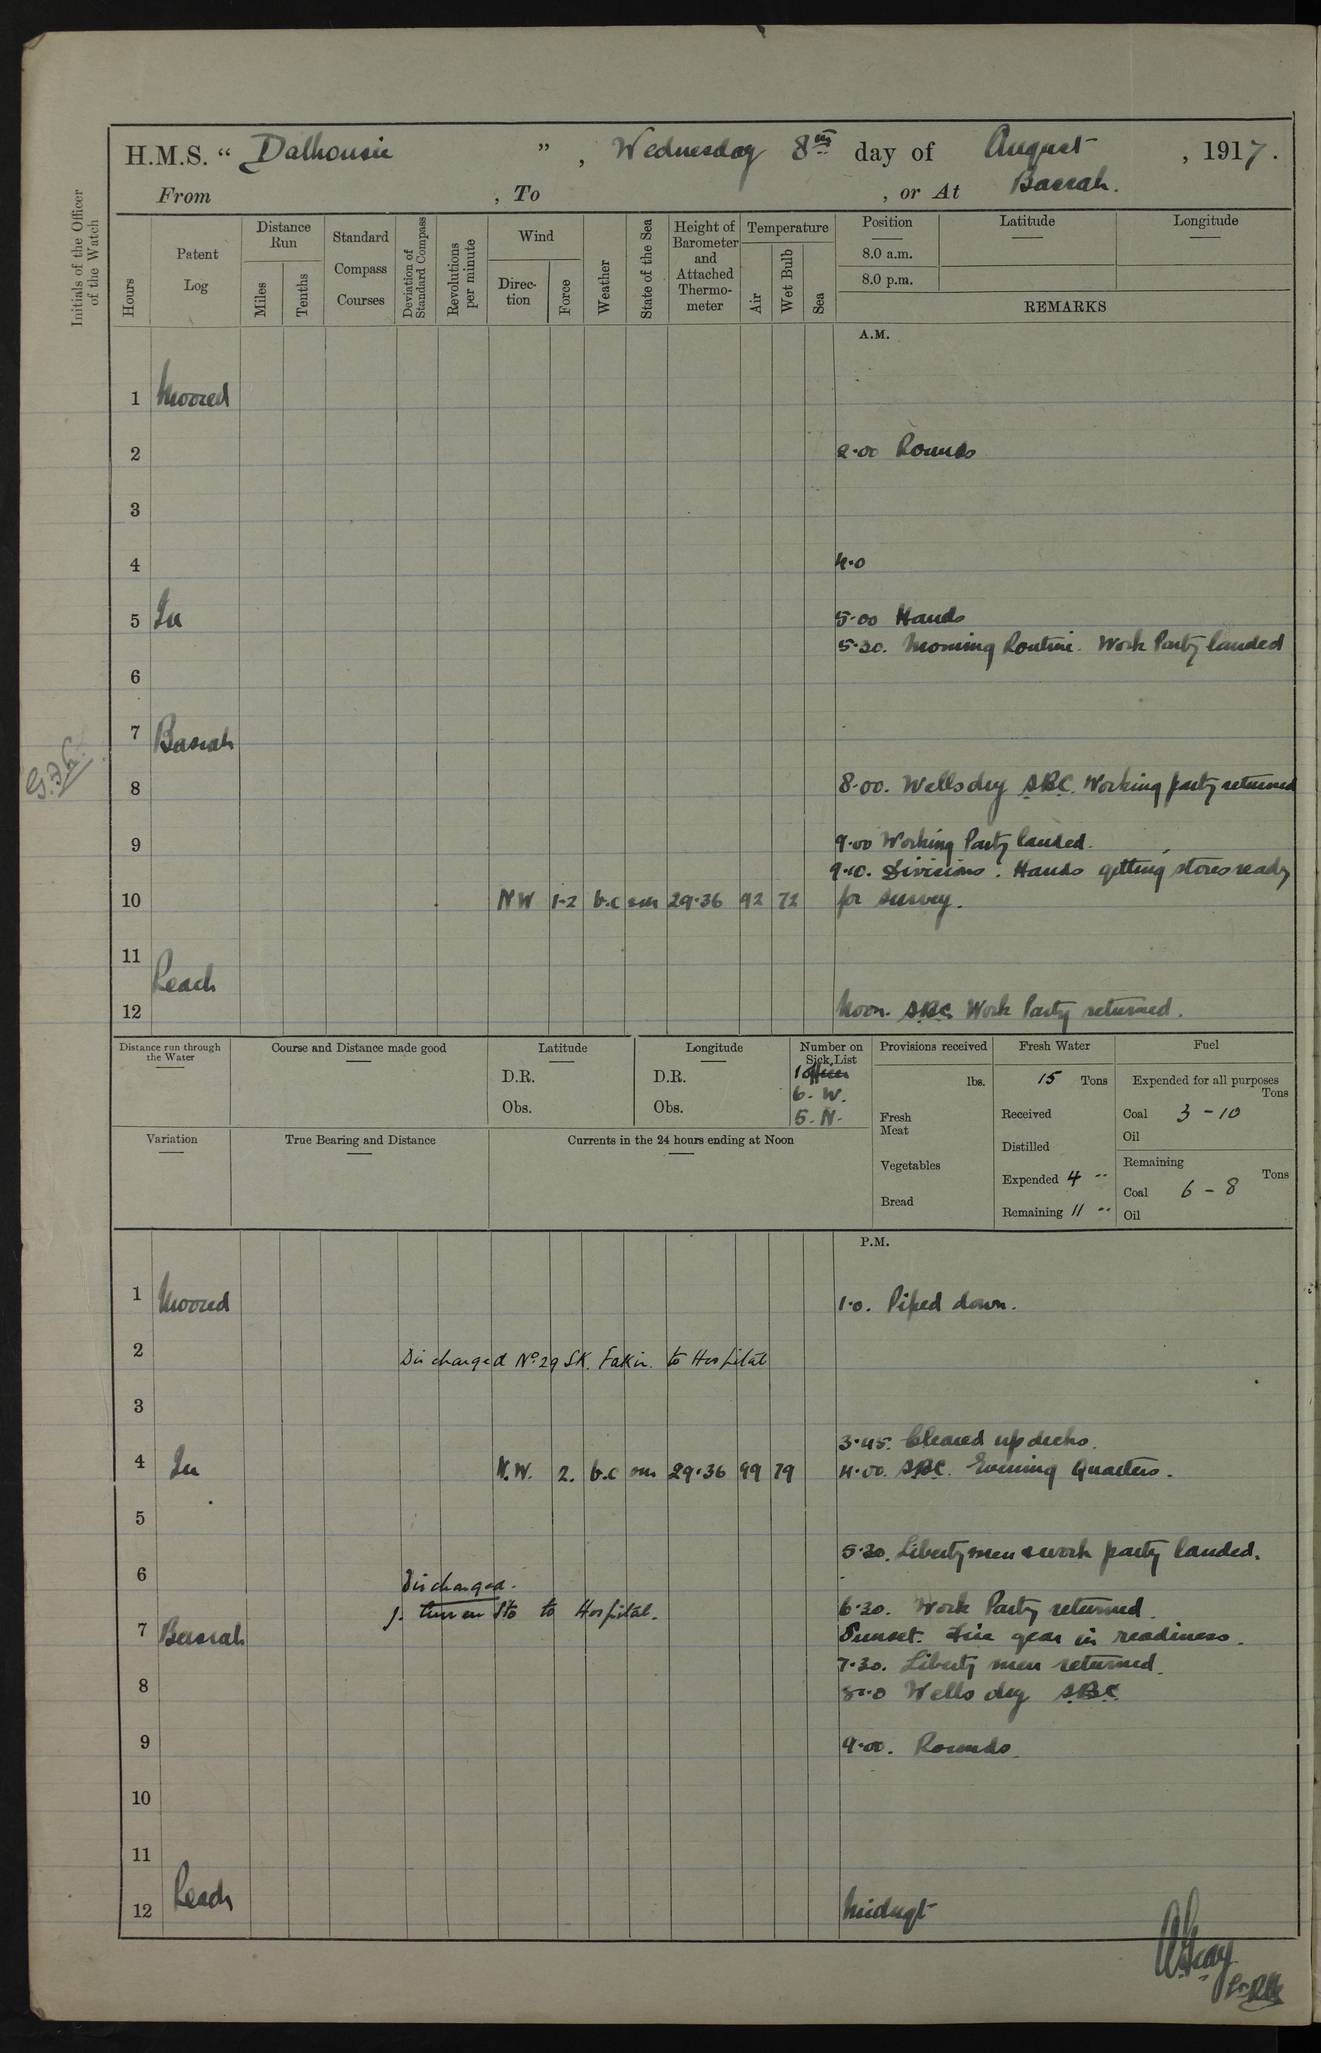 H.M.S. “ Dalhousie ” , Wednesday 8th day of August , 1917.
From , To , or At Basrah.
Initials of the Officer of the Watch
Hours
Patent Log
Distance Run
Miles
Tenths
Standard Compass Courses
Deviation of Standard Compass
Revolutions per minute
Wind
Direction
Force
Weather
State of the Sea
Height of Barometer and Attached Thermometer
Temperature
Air
Wet Bulb
Sea
Position
8.0 a.m.
8.0 p.m.
Latitude
Longitude
REMARKS
A.M.
1 Moored
2 2.00 Rounds
3
4 4.0
5 In 5.00 Hands
5.30. Morning Routine. Work Party landed
6
7 Basrah
8 8.00. Wells dry S.B.C. Working party returned
9 9.00 Working Party landed.
9.10. Divisions. Hands getting stores ready
10 NW 1-2 b.c sm 29.36 92 72 for survey.
11
Reach
12 Noon. S.B.C. Work Party returned.
Distance run through the Water
Course and Distance made good
Latitude
D.R.
Obs.
Longitude
D.R.
Obs.
Number on Sick List
1 officer
6. W.
5. N.
Provisions received
lbs.
Fresh Meat
Vegetables
Bread
Fresh Water
15 Tons
Received
Distilled
Expended 4 "
Remaining 11 "
Fuel
Expended for all purposes
Tons
Coal 3 - 10
Oil
Remaining
Tons
Coal 6 - 8
Oil
Variation
True Bearing and Distance
Currents in the 24 hours ending at Noon
P.M.
1 Moored 1.0. Piped down.
2 Discharged No. 29 SK. Fakir. to Hospital
3
3.45. Cleared up decks.
4 In N.W. 2. b.c sm 29.36 99 79 4.00. S.B.C. Evening Quarters.
5
5.30. Liberty men & work party landed.
6 Discharged.
1. Sto to Hospital. 6.30. Work Party returned.
7 Basrah Sunset. Fire gear in readiness.
7.30. Liberty men returned.
8 8.0 Wells dry S.B.C.
9 9.00. Rounds.
10
11
Reach
12 Midngt